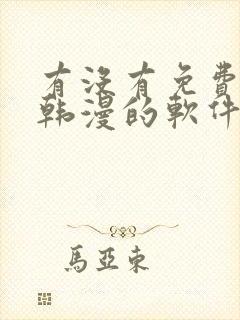 有没有免費
韩漫的軟件
馬亞東